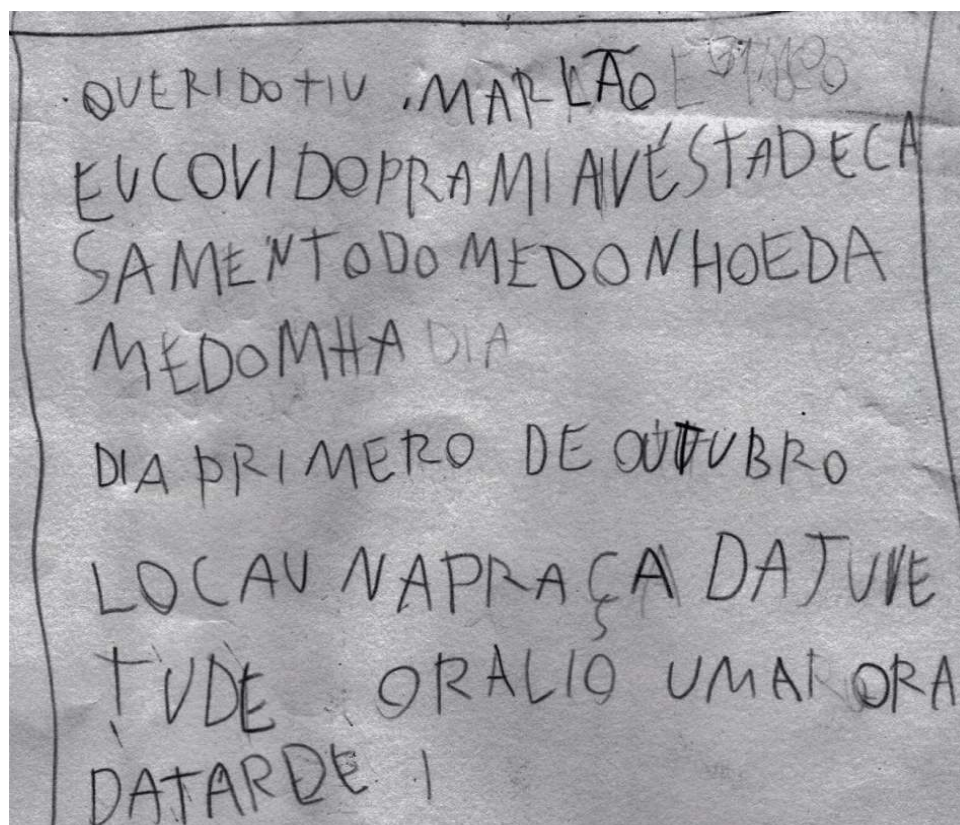 QUERIDO TIU . MARLÃO
EUCOVIDOPRAMIAVÉSTADECA
SAMENTODOMEDONHOEDA
MEDOMHA DIA
DIA PRIMERO DE OUTUBRO
LOCAU NAPRAÇA DAJUVE
TUDE ORALIO UMA ORA
DATARDE